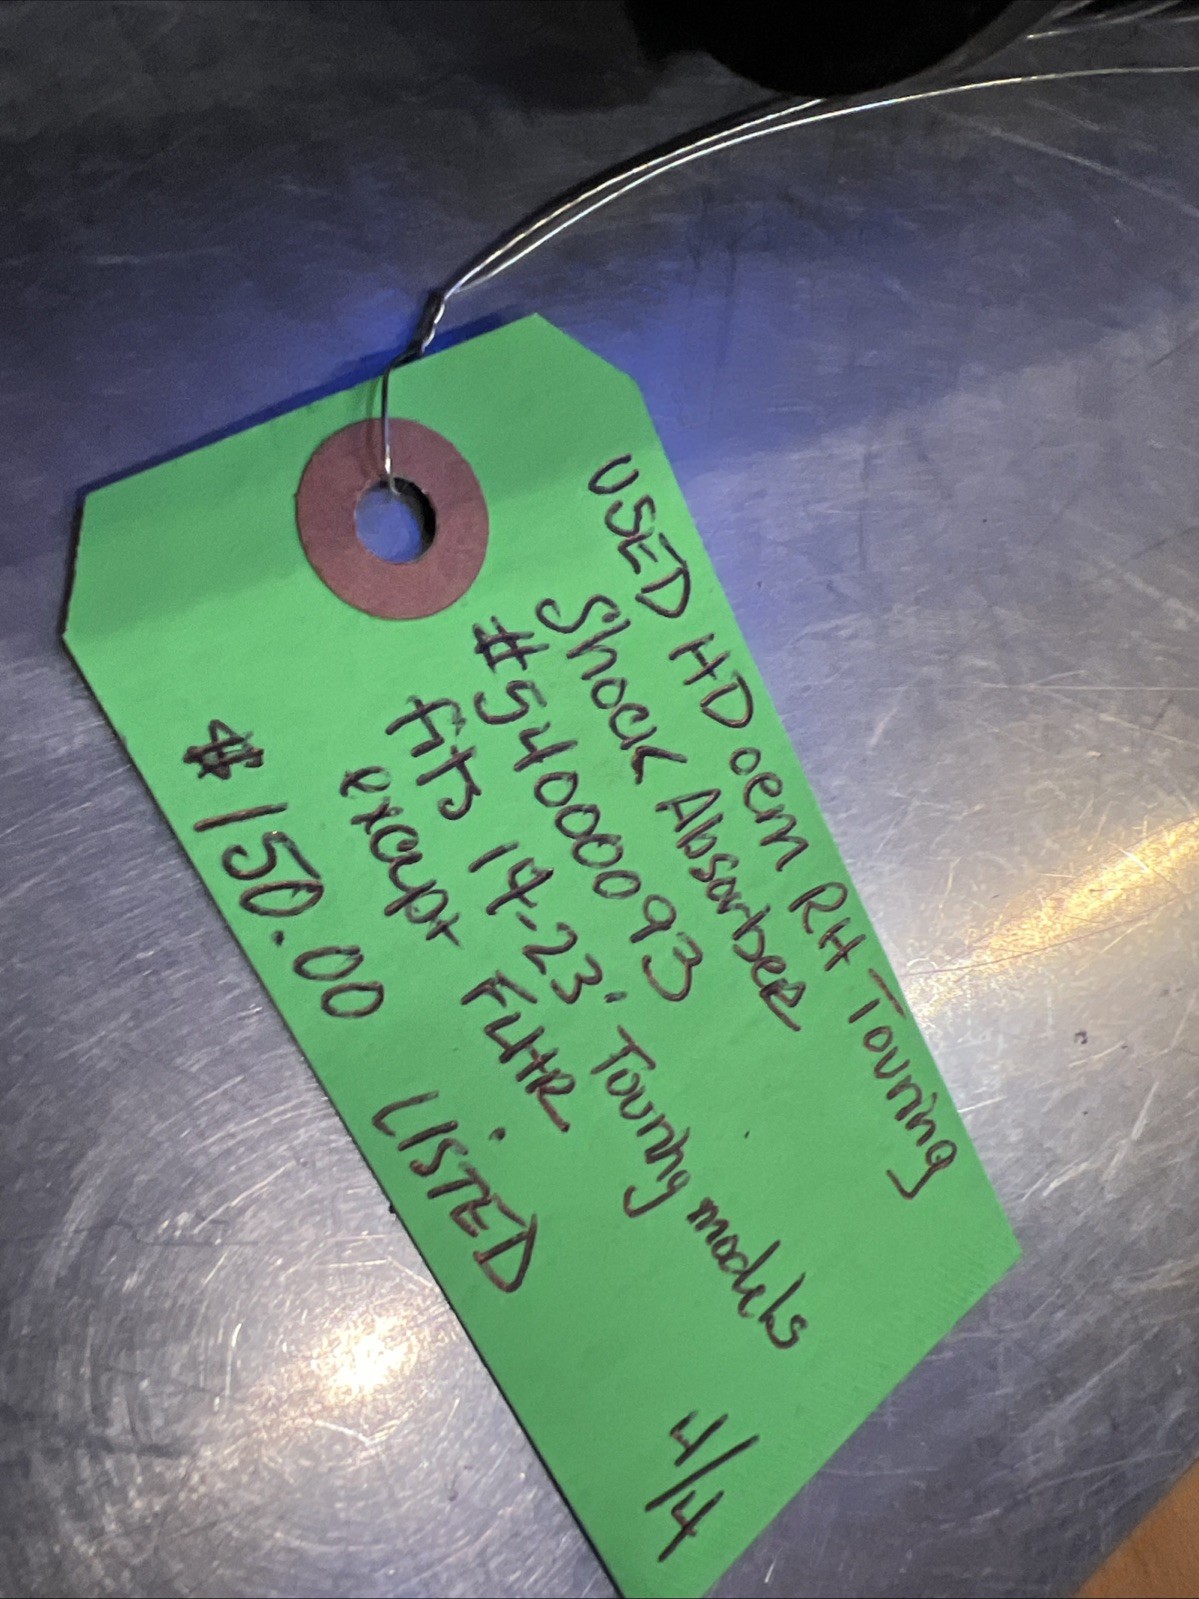 USED HD oem RH Touring
Shock Absorber
#54000093
fits 14-23' Touring models
except FLHR.
$150.00 LISTED
4/4